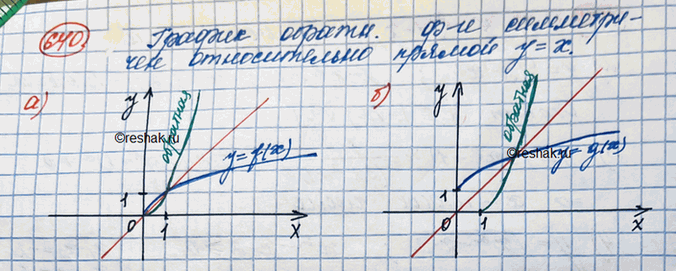 640. График обратн. ф-и симметри-
чен относительно прямой y = x.
а)
y
обратная
©reshak.ru
y = f(x)
1
0
1
x
б)
y
обратная
©reshak.ru
y = g(x)
1
0
1
x